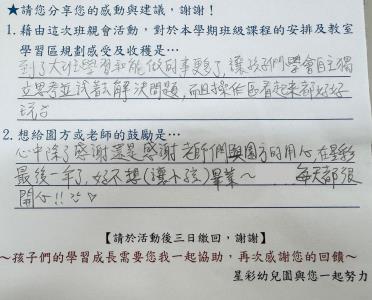 ★請您分享您的感動與建議，謝謝！
1. 藉由這次班親會活動，對於本學期班級課程的安排及教室
學習區規劃感受及收穫是…
到了大班學習和能做的事更多了，讓孩子們學會自主獨
立思考並試著去解決問題，而且操作區看起來都好好
玩
2. 想給園方或老師的鼓勵是…
心中除了感謝還是感謝老師們與園方的用心，在星彩
最後一年了，好不想(讓小孩)畢業～ 每天都很
開心!!
【請於活動後三日繳回，謝謝】
～孩子們的學習成長需要您我一起協助，再次感謝您的回饋～
星彩幼兒園與您一起努力